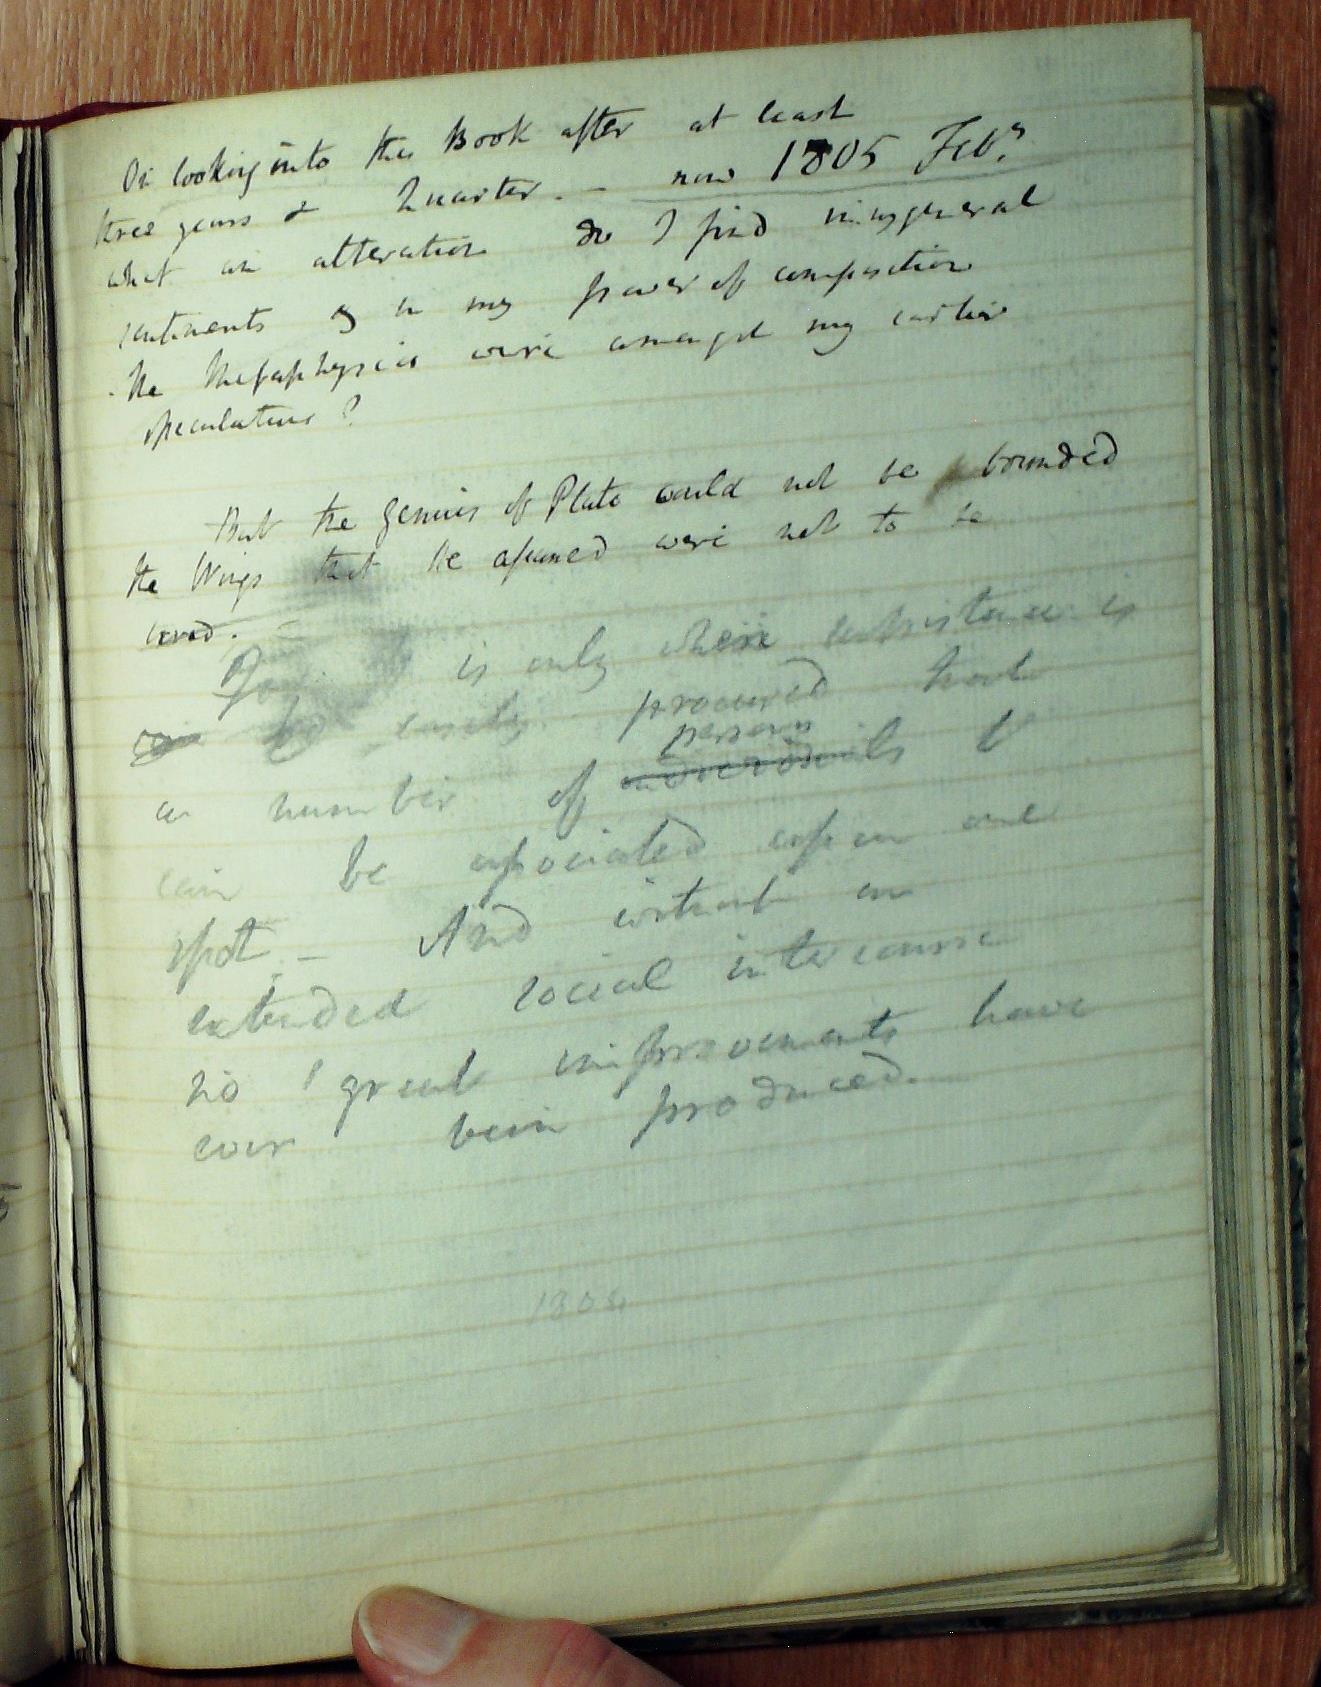 On looking into this Book after at least
three years & Quarter. – now 1805 Feby
what an alteration do I find in my general
sentiments & in my power of composition
the Metaphysics were amongst my earlier
speculations?
But the genius of Plato could not be bounded
the Wings that he assumed were not to be
is only where subsistence is
easily procured that
a number of individuals persons
can be associated upon one
spot – And without an
extended social intercourse
no great improvements have
ever been produced.